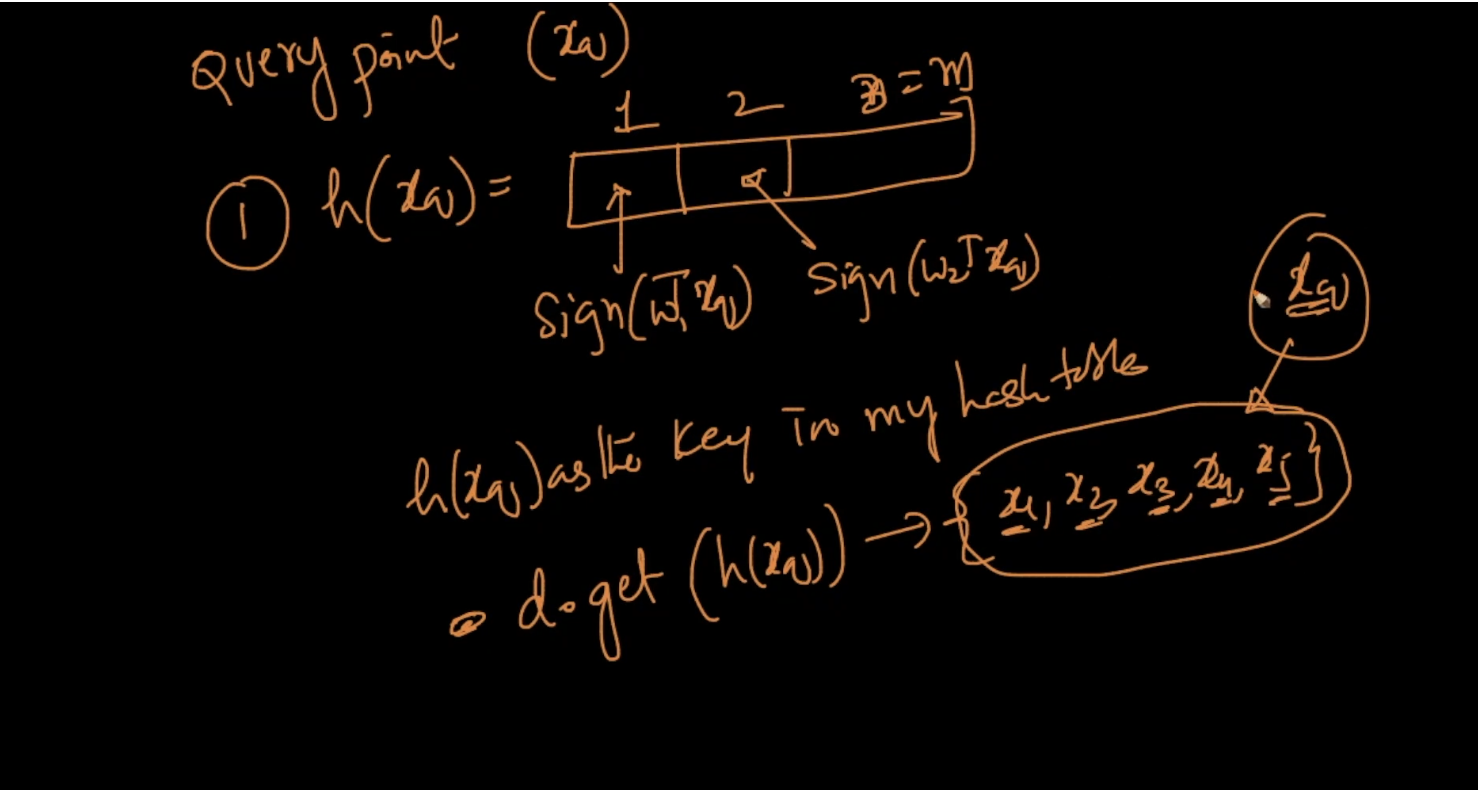 Query point (xq)
1 2 = m
① h(xq) =
Sign(w₁ᵀxq) Sign(w₂ᵀxq)
xq
h(xq) as the key in my hash table
• d.get (h(xq)) → {x1, x2, x3, x4, x5}